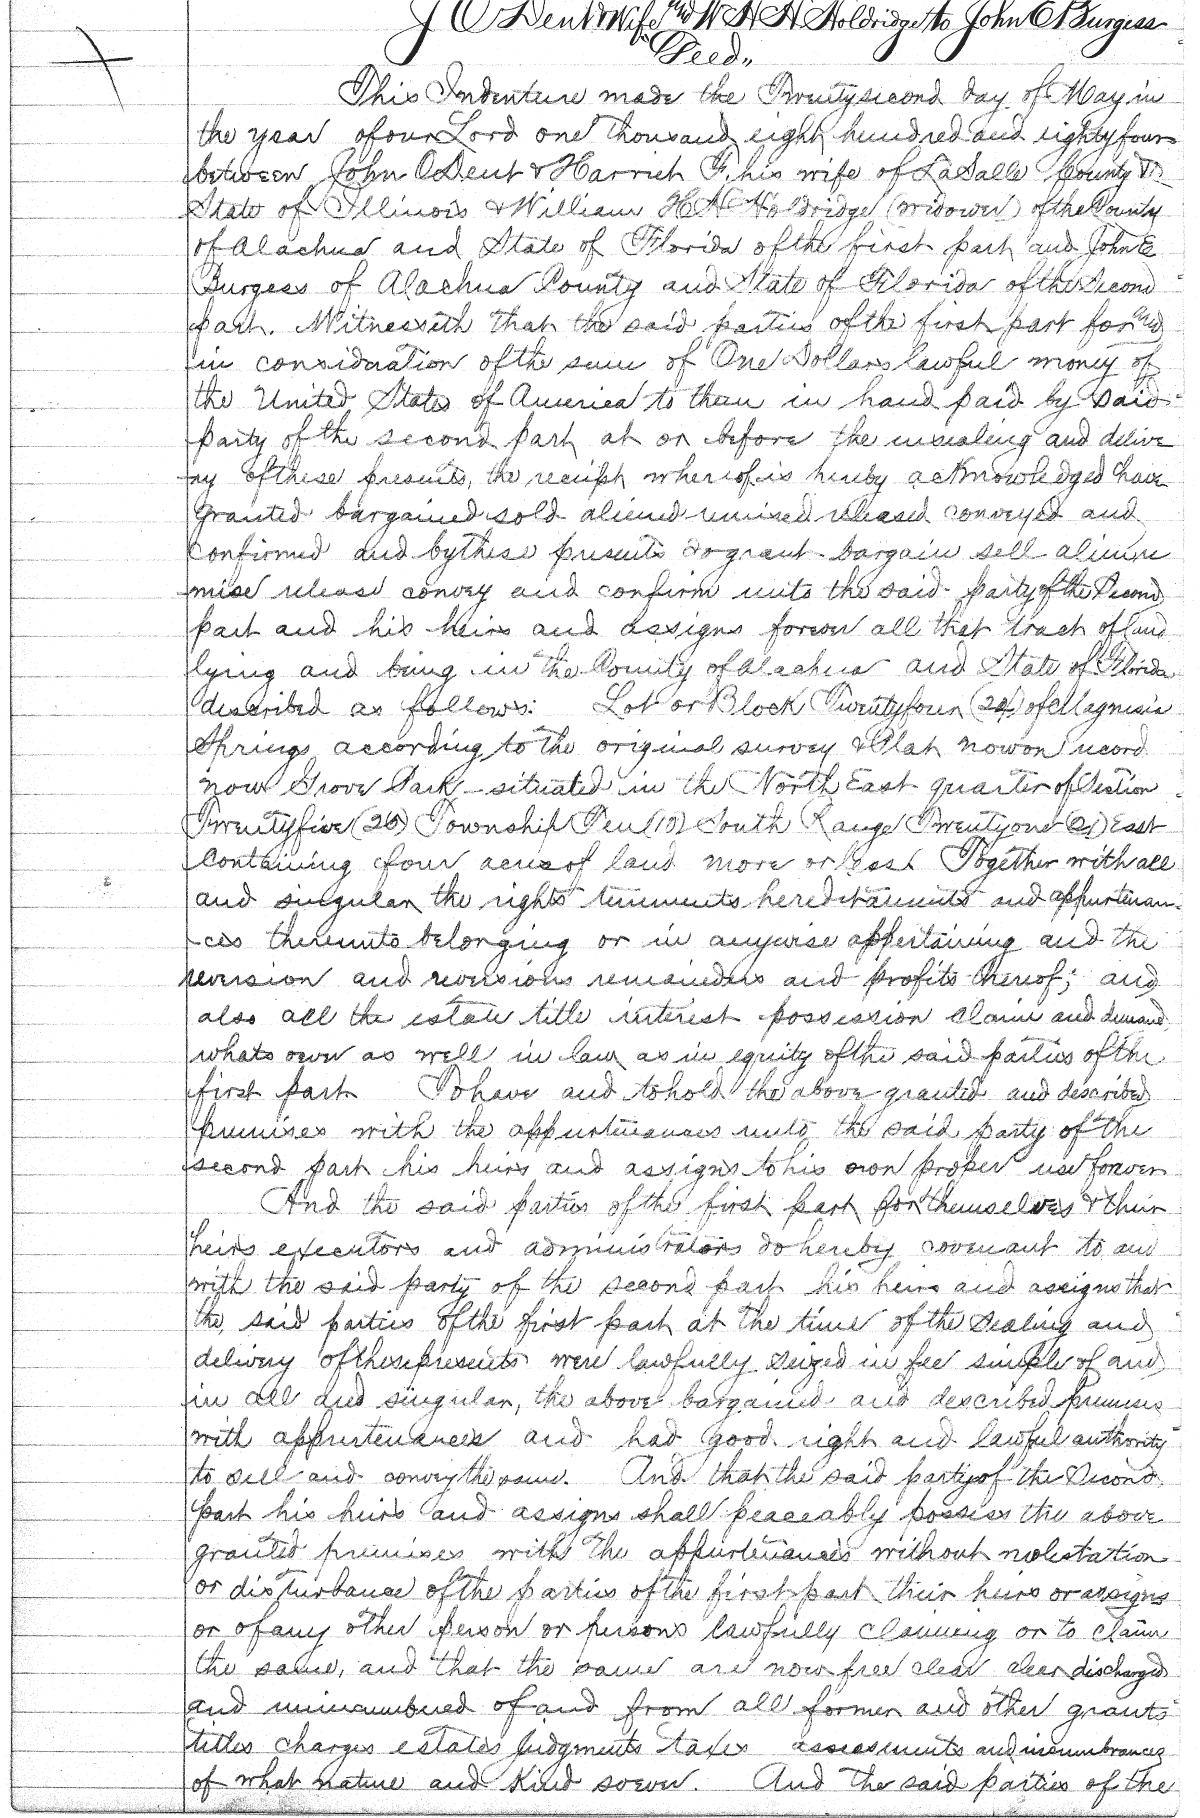 J O Dent & Wife and W H H Holdridge to John E Burgess
"Deed"
This Indenture made the Twentysecond day of May in
the year of our Lord one thousand eight hundred and eightyfour
between John O Dent & Harriet F. his wife of LaSalle County &
State of Illinois & William H H Holdridge (widower) of the County
of Alachua and State of Florida of the first part and John E
Burgess of Alachua County and State of Florida of the Second
part. Witnesseth that the said parties of the first part for and
in consideration of the sum of One Dollars lawful money of
the United States of America to them in hand paid by said
party of the second part at or before the ensealing and delive
ry of these presents, the receipt whereof is hereby acknowledged have
granted bargained sold aliened remised released conveyed and
confirmed and by these presents do grant bargain sell alien re
mise release convey and confirm unto the said party of the Second
part and his heirs and assigns forever all that tract of land
lying and being in the County of Alachua and State of Florida
described as follows: Lot or Block Twentyfour (24) of Magnesia
Springs according to the original survey & Plat now on record
now Grove Park situated in the North East quarter of Section
Twentyfive (25) Township Ten (10) South Range Twentyone (21) East
Containing four acres of land more or less. Together with all
and singular the rights tenements hereditaments and appurtenan-
-ces thereunto belonging or in anywise appertaining and the
reversion and reversions remainders and profits thereof; and
also all the estate title interest possession claim and demand
whatsoever as well in law as in equity of the said parties of the
first part To have and to hold the above granted and described
premises with the appurtenances unto the said party of the
second part his heirs and assigns to his own proper use forever
And the said parties of the first part for themselves & their
heirs executors and administrators do hereby covenant to and
with the said party of the second part his heirs and assigns that
the said parties of the first part at the time of the Sealing and
delivery of these presents were lawfully seized in fee simple of and
in all and singular, the above bargained and described premises
with appurtenances and had good right and lawful authority
to sell and convey the same. And that the said party of the Second
part his heirs and assigns shall peaceably possess the above
granted premises with the appurtenances without molestation
or disturbance of the parties of the first part their heirs or assigns
or of any other person or persons lawfully claiming or to claim
the same, and that the same are now free clear clear discharged
and unincumbered of and from all former and other grants
titles charges estates Judgments taxes assessments and incumbrances
of what nature and kind soever. And the said parties of the